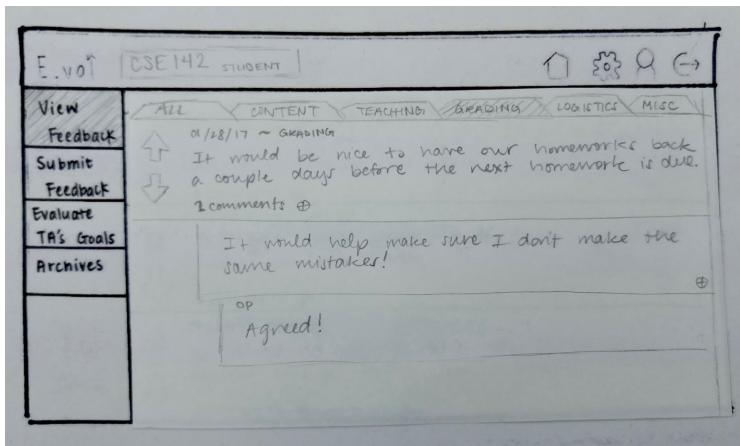 E.voï
CSE 142 STUDENT
View
Feedback
Submit
Feedback
Evaluate
TA's Goals
Archives
ALL CONTENT TEACHING GRADING LOGISTICS MISC
01/28/17 ~ GRADING
It would be nice to have our homeworks back
a couple days before the next homework is due.
2 comments
It would help make sure I don't make the
same mistakes!
OP
Agreed!